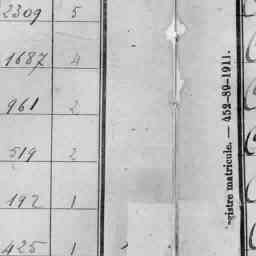 2309 5
1687 4
961 2
519 2
192 1
425 1
egistre matricule. — 452-89-1911.